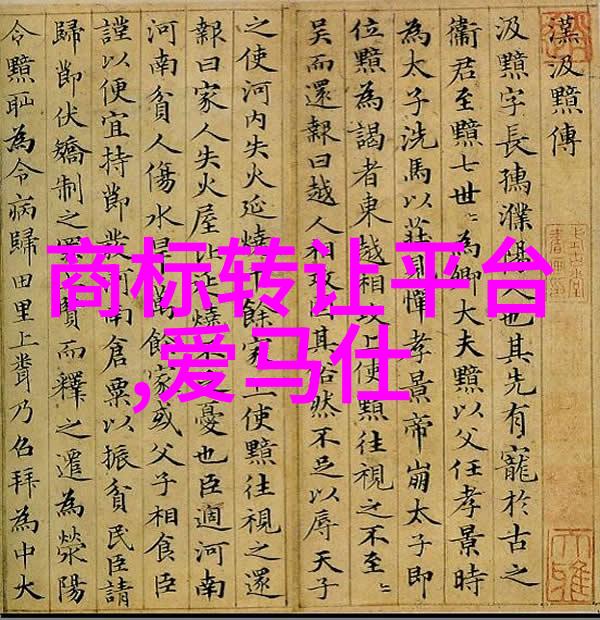 商标转让平台
,爱马仕
漢汲黯傳
汲黯字長孺濮陽人也其先有寵於古之
衞君至黯七世〻為卿大夫黯以父任孝景時
為太子洗馬以莊見憚孝景帝崩太子即
位黯為謁者東越相攻上使黯往視之不至〻
吳而還報曰越人相攻其俗然不足以辱天子
之使河內失火延燒千餘家上使黯往視之還
報曰家人失火屋比延燒不憂也臣過河南
河南貧人傷水旱萬餘家或父子相食臣
謹以便宜持節發河南倉粟以振貧民臣請
歸節伏矯制之罪賢而釋之遷為滎陽
令黯恥為令病歸田里上聞乃召拜為中大